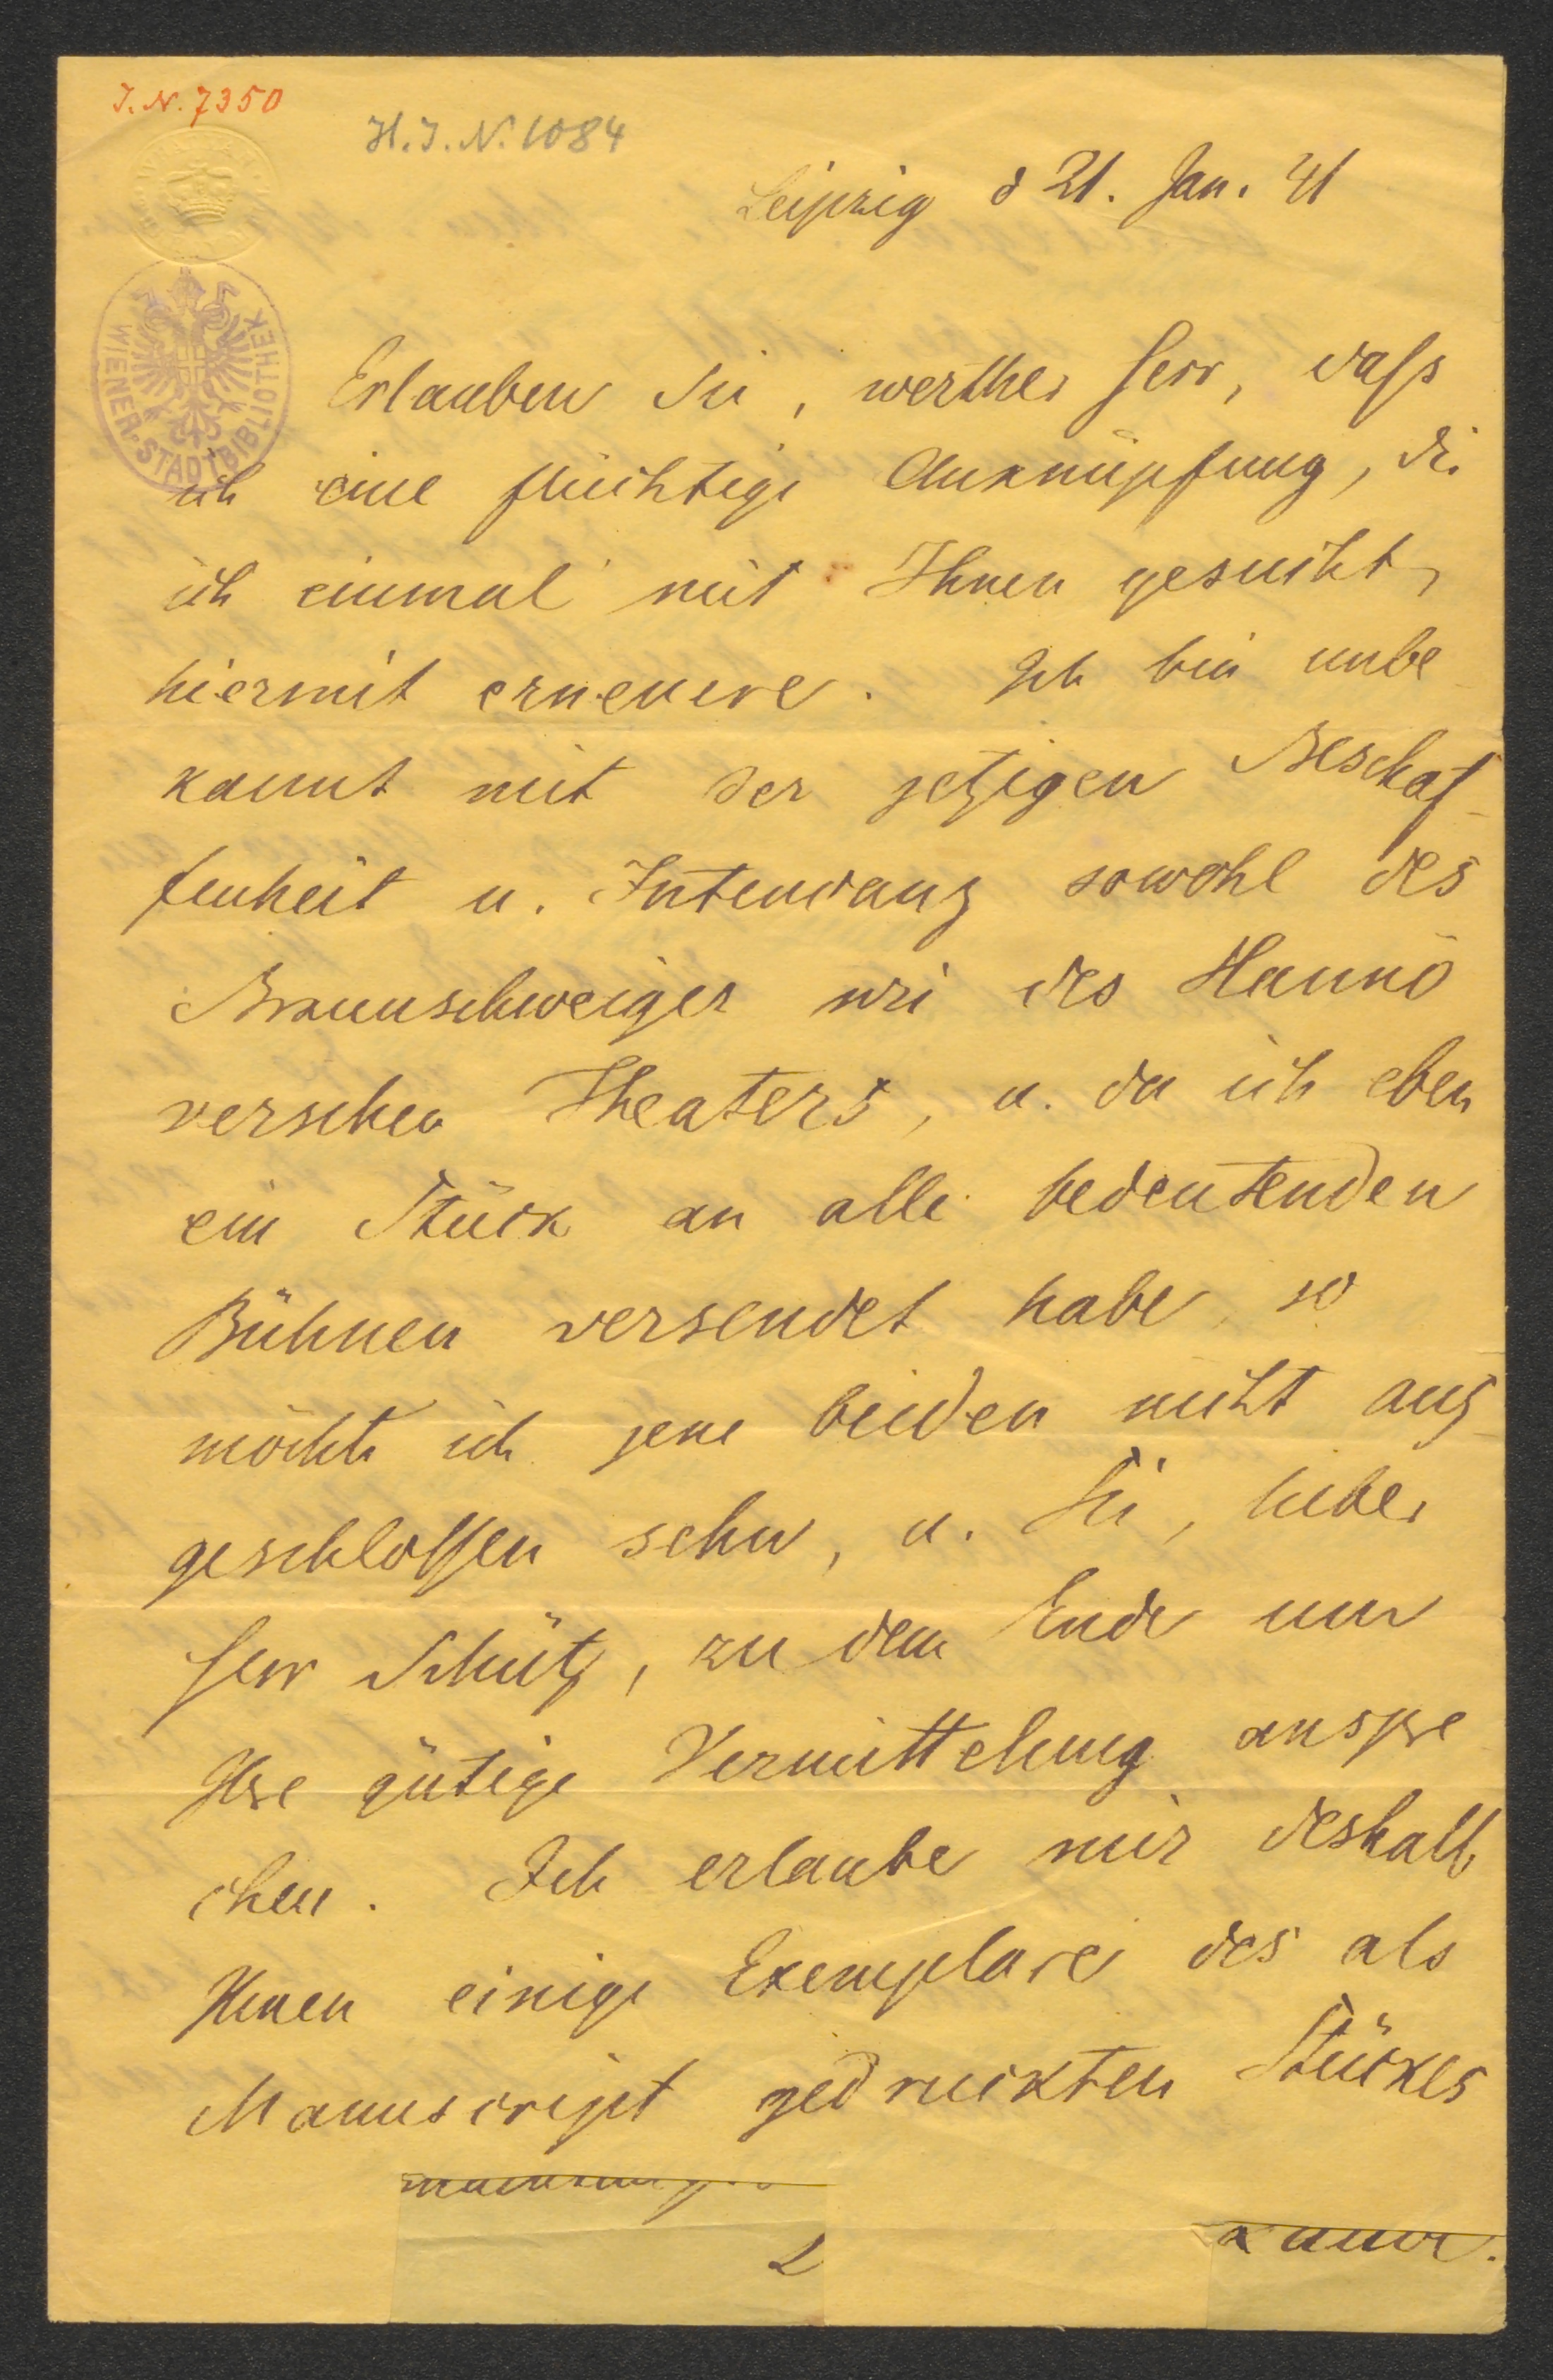 I. N. 7350
H. I. N. 1084
WIENER-STADTBIBLIOTHEK
Leipzig d 21. Jan. 41
Erlauben Sie, werther Herr, daſs
ich eine flüchtige Anknüpfung, die
ich einmal mit Ihnen gesucht,
hiermit erneuere. Ich bin unbe
kannt mit der jetzigen Beschaf-
fenheit u. Intendanz sowohl des
Braunschweiger wie des Hannö
verschen Theaters, u. da ich eben
ein Stück an alle bedeutenden
Bühnen versendet habe, so
möchte ich jene beiden nicht aus
geschloſsen sehn, u. Sie, lieber
Herr Schütz, zu dem Ende um
Ihre gütige Vermittelung anspre
chen. Ich erlaube mir deshalb
Ihnen einige Exemplare des als
Manuscript gedruckten Stückes